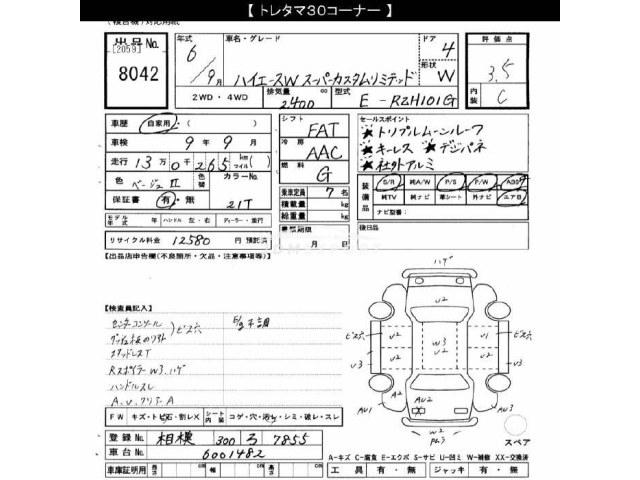 【 トレタマ30コーナー 】
出品No.
[2059]
8042
年式 6 / 9月
車名・グレード
ハイエースW スーパーカスタムリミテッド
ドア 4
形状 W
評価点 3.5
内装 C
2WD・4WD
排気量 2400 cc
型式 E-RZH101G
車歴 自家用・( )
車検 9年 9月
走行 13万0千265 km マイル ( )
色 ベージュII 色替 カラーNo.
保証書 有・無 21T
モデル年式 年 ハンドル 左・右 ディーラー・並行
リサイクル料金 12580 円 預託済
シフト FAT
冷房 AAC
燃料 G
乗車定員 7 名
積載量 kg
総重量 kg
車票期限 月 日
セールスポイント
★トリプルムーンルーフ
★キーレス ★デジパネ
★社外アルミ
装備品 S/R 純A/W P/S P/W ABS
純TV 純ナビ 革シート 外ナビ エアB
ナビ型番:
後日品
【出品店申告欄(不良箇所・欠品・注意事項等)】
【検査員記入】
センターコンソール
ビス穴
ハンドルスレ
FW キズ・トビ石・割レX シート内張 コゲ・穴・汚レ・シミ・破レ・スレ
登録No. 相模 300 ろ 7855
車台No. 6001482
車庫証明用 長さ 幅 高さ
ハゲ
U2
ビス穴 U2 U1 ビス穴
U3 U2 W3 U2 U3
AU2 U2
AU1 AU3
W2
スペア
A-キズ C-腐食 E-エクボ S-サビ U-凹ミ W-補修 XX-交換済
工具 有・無 ジャッキ 有・無